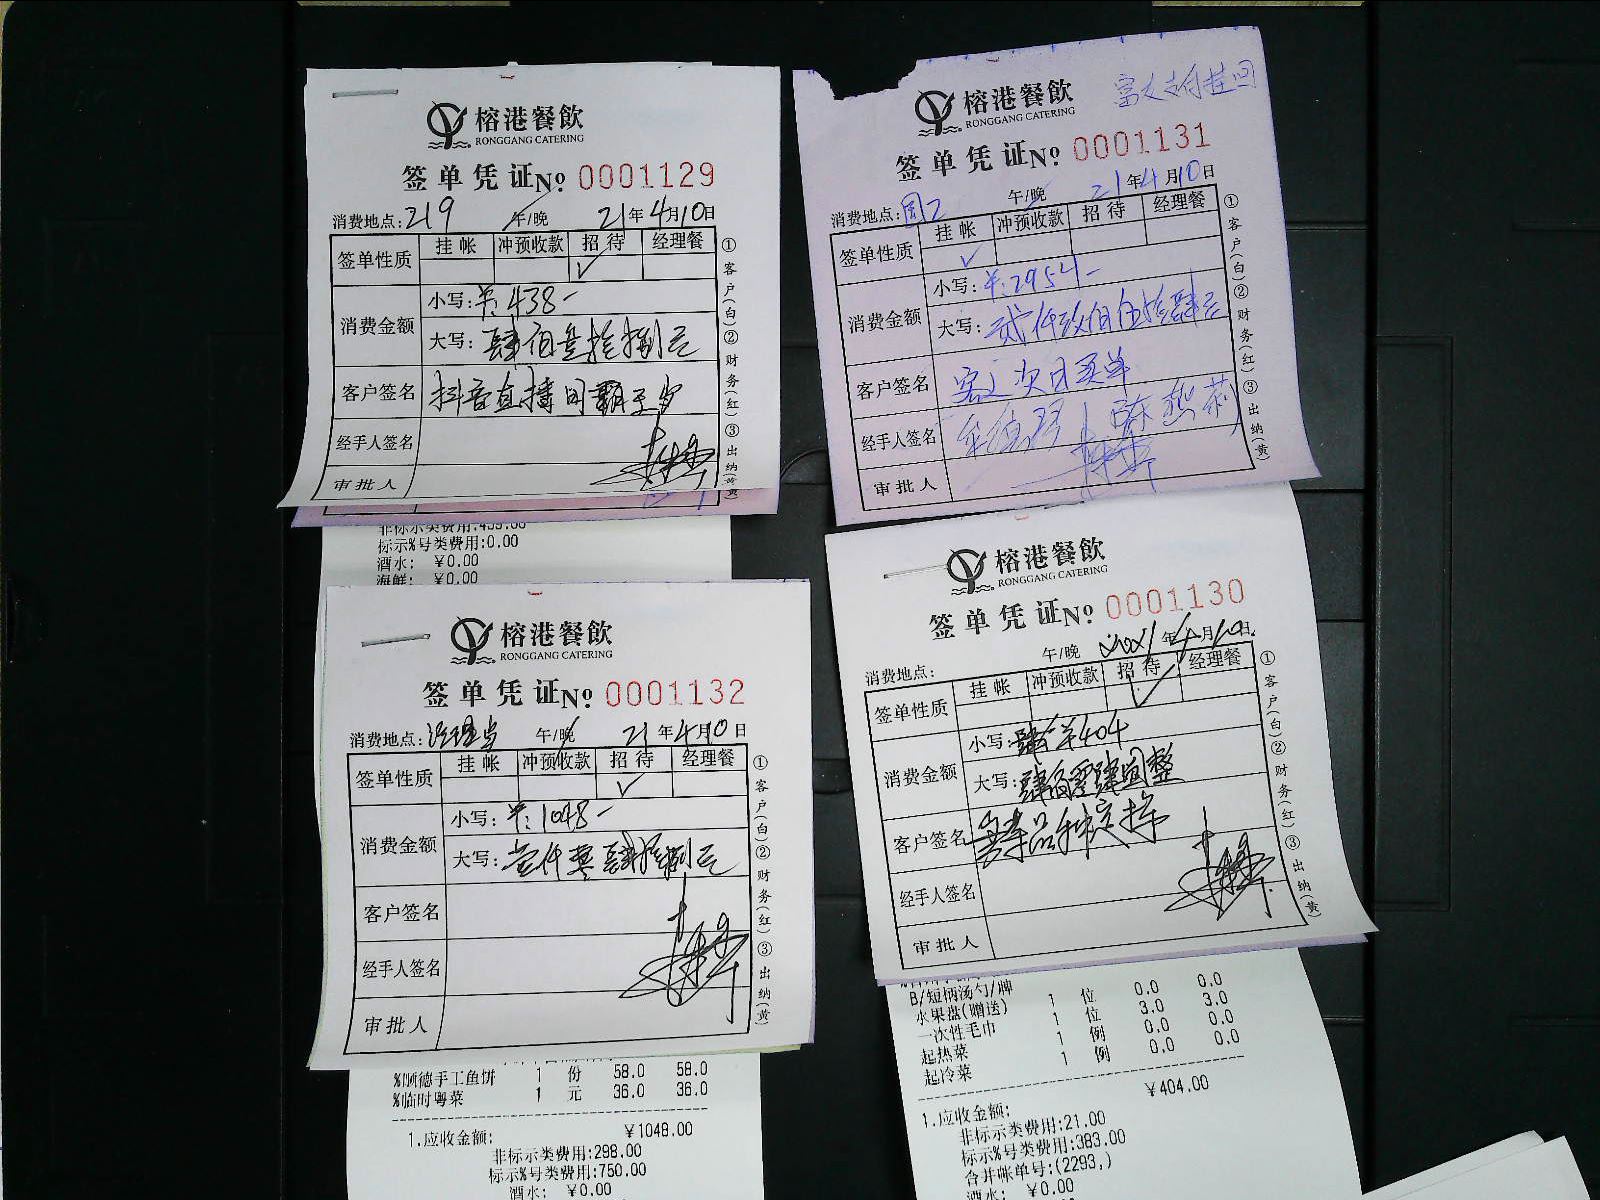 榕港餐飲
RONGGANG CATERING
签单凭证No 0001129
消费地点:219 午/晚 21年4月10日
签单性质 挂帐 冲预收款 招待 经理餐
✓
消费金额 小写:¥:438-
大写:肆佰叁拾捌元
客户签名 抖音直播
经手人签名
审批人
①客户(白)②财务(红)③出纳(黄)
非标示类费用:
标示%号类费用:0.00
酒水: ¥0.00
海鲜: ¥0.00
榕港餐飲
RONGGANG CATERING
签单凭证No 0001131
消费地点: 午/晚 21年4月10日
签单性质 挂帐 冲预收款 招待 经理餐
✓
消费金额 小写:¥:2954-
大写:贰仟玖佰伍拾肆元
客户签名 次日买单
经手人签名
审批人
①客户(白)②财务(红)③出纳(黄)
榕港餐飲
RONGGANG CATERING
签单凭证No 0001132
消费地点: 午/晚 21年4月10日
签单性质 挂帐 冲预收款 招待 经理餐
✓
消费金额 小写:¥:1048-
大写:壹仟零肆拾捌元
客户签名
经手人签名
审批人
①客户(白)②财务(红)③出纳(黄)
%顺德手工鱼饼 1 份 58.0 58.0
%临时粤菜 1 元 36.0 36.0
1.应收金额: ¥1048.00
非标示类费用:298.00
标示%号类费用:750.00
酒水: ¥0.00
榕港餐飲
RONGGANG CATERING
签单凭证No 0001130
消费地点: 午/晚 2021年4月10日
签单性质 挂帐 冲预收款 招待 经理餐
✓
消费金额 小写:404
大写:肆佰零肆圆整
客户签名
经手人签名
审批人
①客户(白)②财务(红)③出纳(黄)
B/短柄汤勺/牌 1 位 0.0 0.0
水果盘(赠送) 1 位 3.0 3.0
一次性毛巾 1 例 0.0 0.0
起热菜 1 例 0.0 0.0
起冷菜
¥404.00
1.应收金额:
非标示类费用:21.00
标示%号类费用:383.00
合并帐单号:(2293,)
酒水: ¥0.00